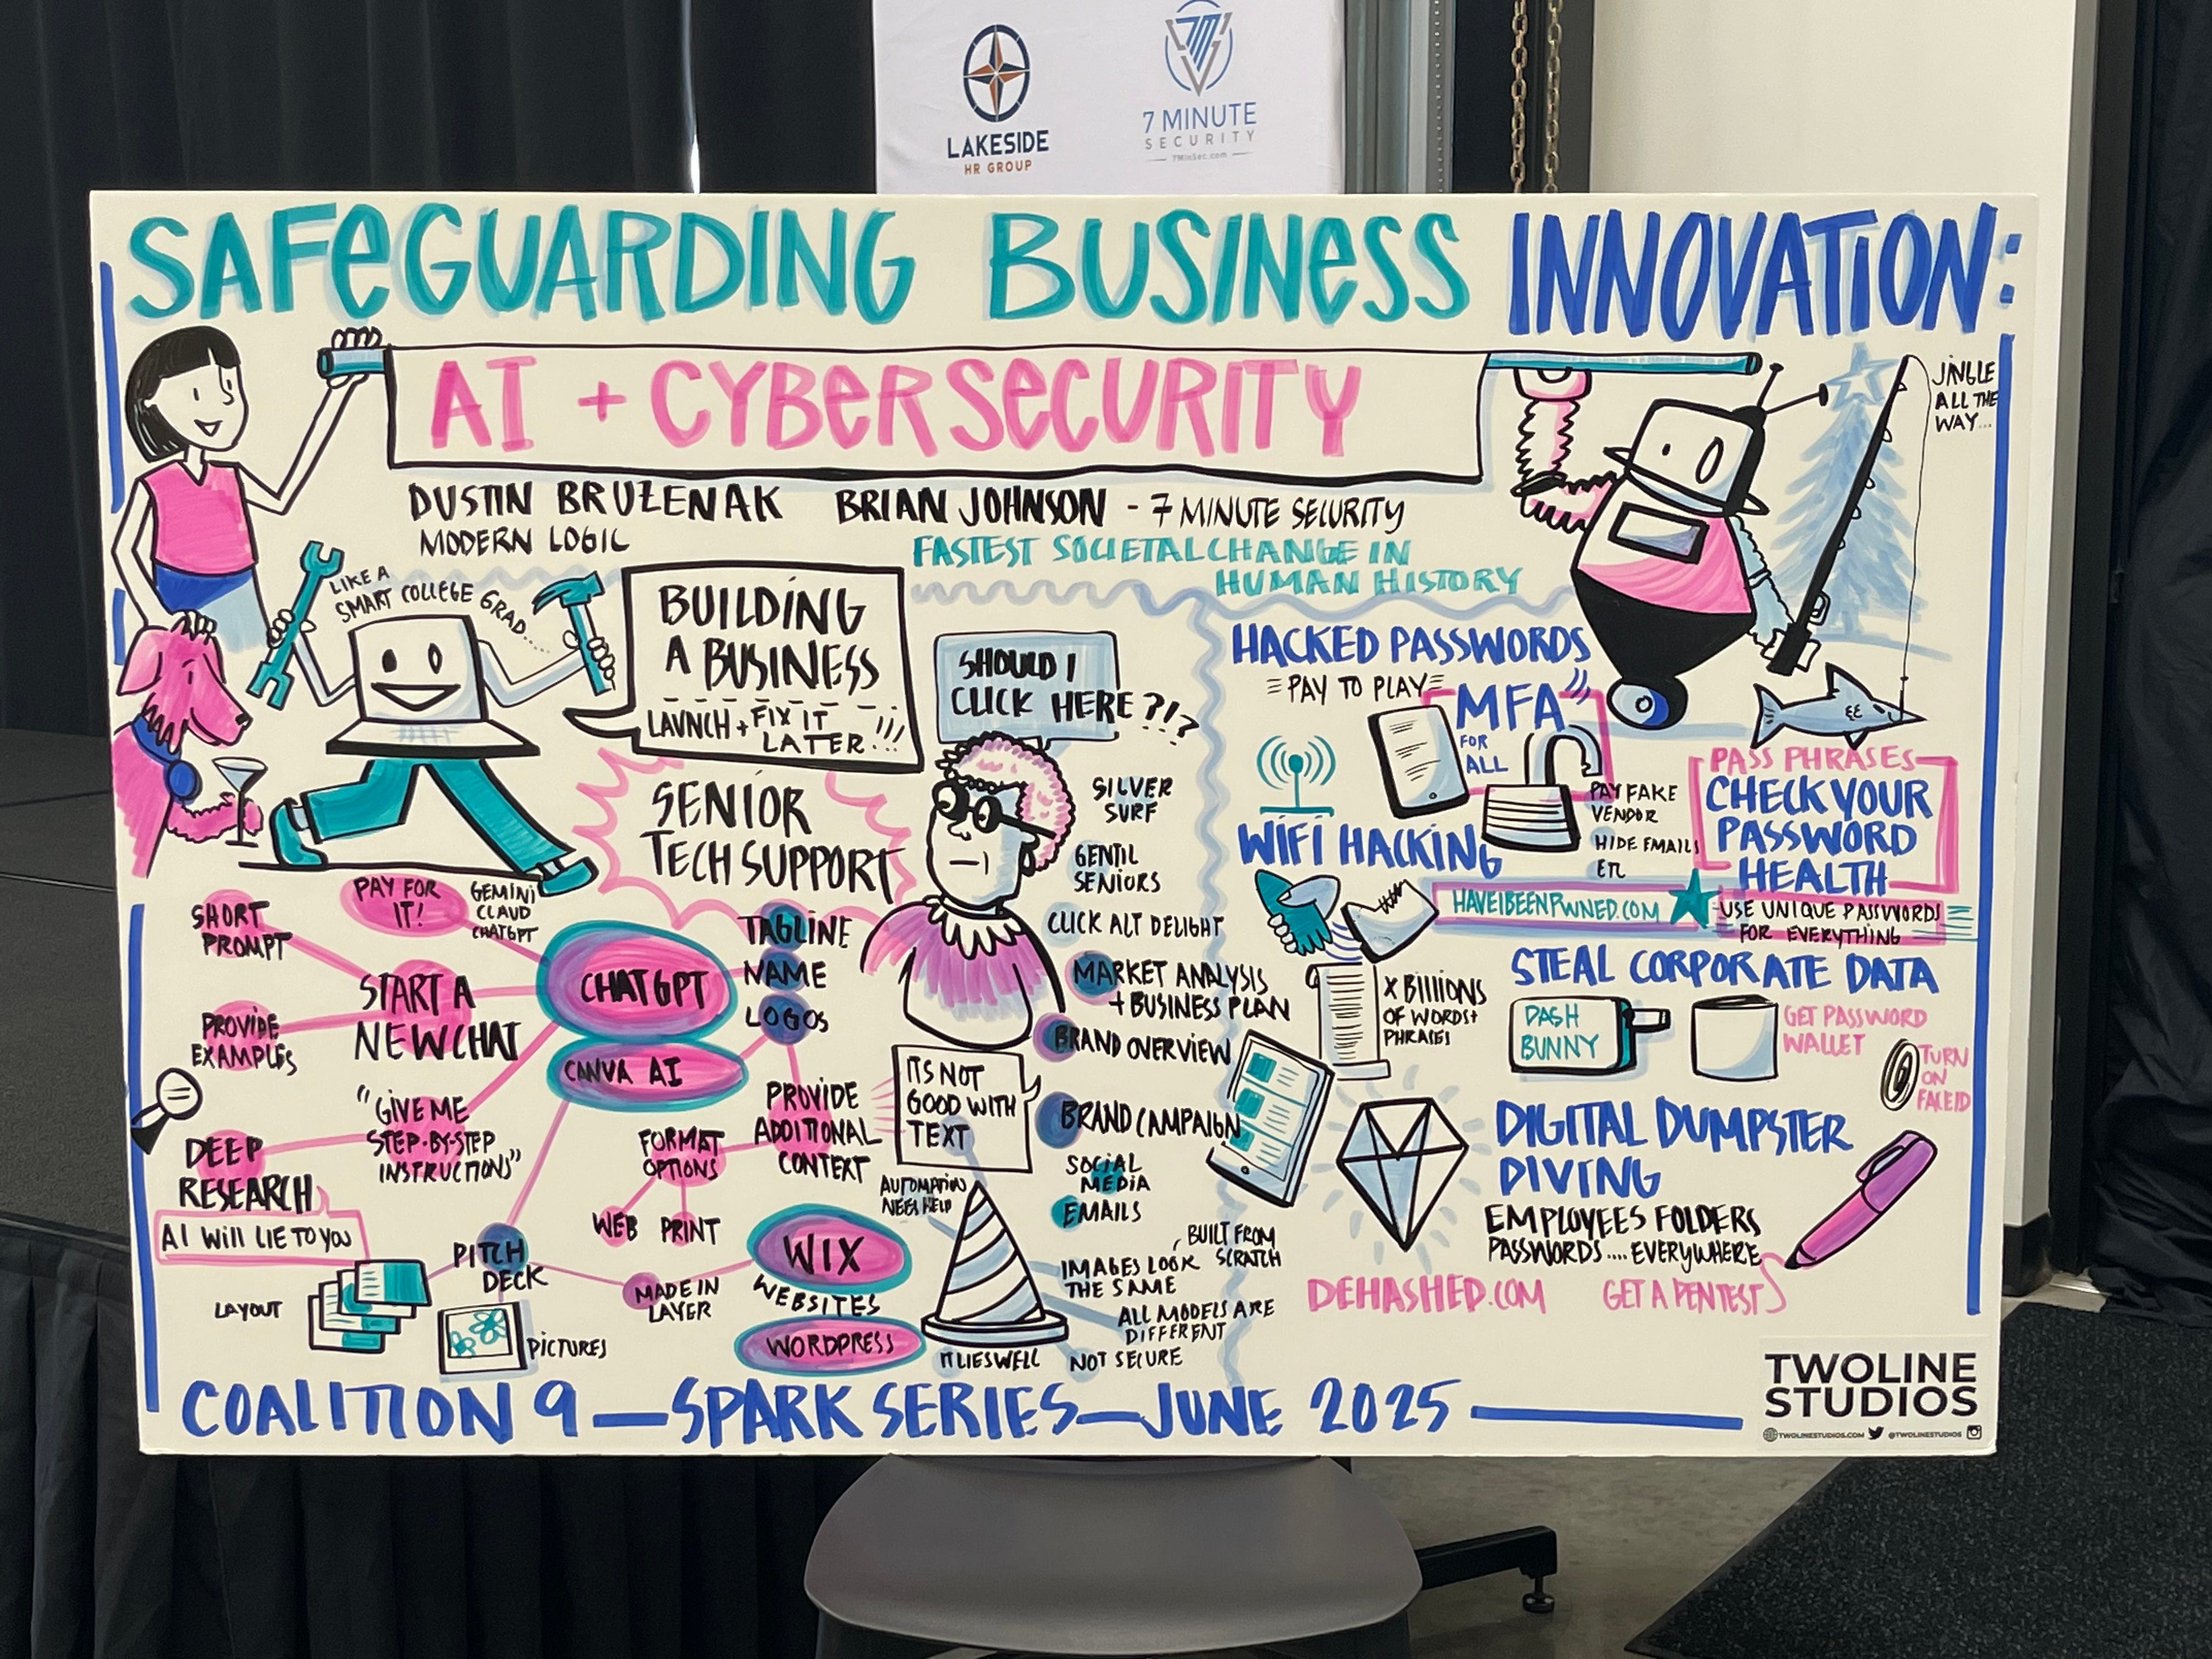 LAKESIDE
HR GROUP
7 MINUTE
SECURITY
7MinSec.com
SAFEGUARDING BUSINESS INNOVATION:
AI + CYBERSECURITY
JINGLE
ALL THE
WAY...
DUSTIN BRUZENAK
MODERN LOGIC
BRIAN JOHNSON - 7 MINUTE SECURITY
FASTEST SOCIETAL CHANGE IN
HUMAN HISTORY
LIKE A
SMART COLLEGE GRAD....
BUILDING
A BUSINESS
LAUNCH + FIX IT
LATER...!!!
SHOULD I
CLICK HERE?!?
SENIOR
TECH SUPPORT
SILVER
SURF
GENTIL
SENIORS
CLICK ALT DELIGHT
SHORT
PROMPT
PAY FOR
IT!
GEMINI
CLAUD
CHATGPT
START A
NEW CHAT
PROVIDE
EXAMPLES
CHATGPT
CANVA AI
TAGLINE
NAME
LOGOS
"GIVE ME
STEP-BY-STEP
INSTRUCTIONS"
DEEP
RESEARCH
AI WILL LIE TO YOU
FORMAT
OPTIONS
WEB PRINT
PROVIDE
ADDITIONAL
CONTEXT
PITCH
DECK
LAYOUT
PICTURES
MADE IN
LAYER
WIX
WEBSITES
WORDPRESS
MARKET ANALYSIS
+ BUSINESS PLAN
BRAND OVERVIEW
BRAND CAMPAIGN
SOCIAL
MEDIA
EMAILS
ITS NOT
GOOD WITH
TEXT
AUTOMATION
NEEDS HELP
BUILT FROM
SCRATCH
IMAGES LOOK
THE SAME
ALL MODELS ARE
DIFFERENT
NOT SECURE
IT LIES WELL
HACKED PASSWORDS
PAY TO PLAY
MFA
FOR
ALL
PAY FAKE
VENDOR
HIDE EMAILS
WIFI HACKING
PASS PHRASES
CHECK YOUR
PASSWORD
HEALTH
HAVEIBEENPWNED.COM
USE UNIQUE PASSWORDS
FOR EVERYTHING
X BILLIONS
OF WORDS+
PHRASES
STEAL CORPORATE DATA
DASH
BUNNY
GET PASSWORD
WALLET
TURN
ON
FACEID
DIGITAL DUMPSTER
DIVING
EMPLOYEES FOLDERS
PASSWORDS....EVERYWHERE
DEHASHED.COM
GET A PENTEST
COALITION 9 — SPARK SERIES — JUNE 2025
TWOLINE
STUDIOS
TWOLINESTUDIOS.COM @TWOLINESTUDIOS